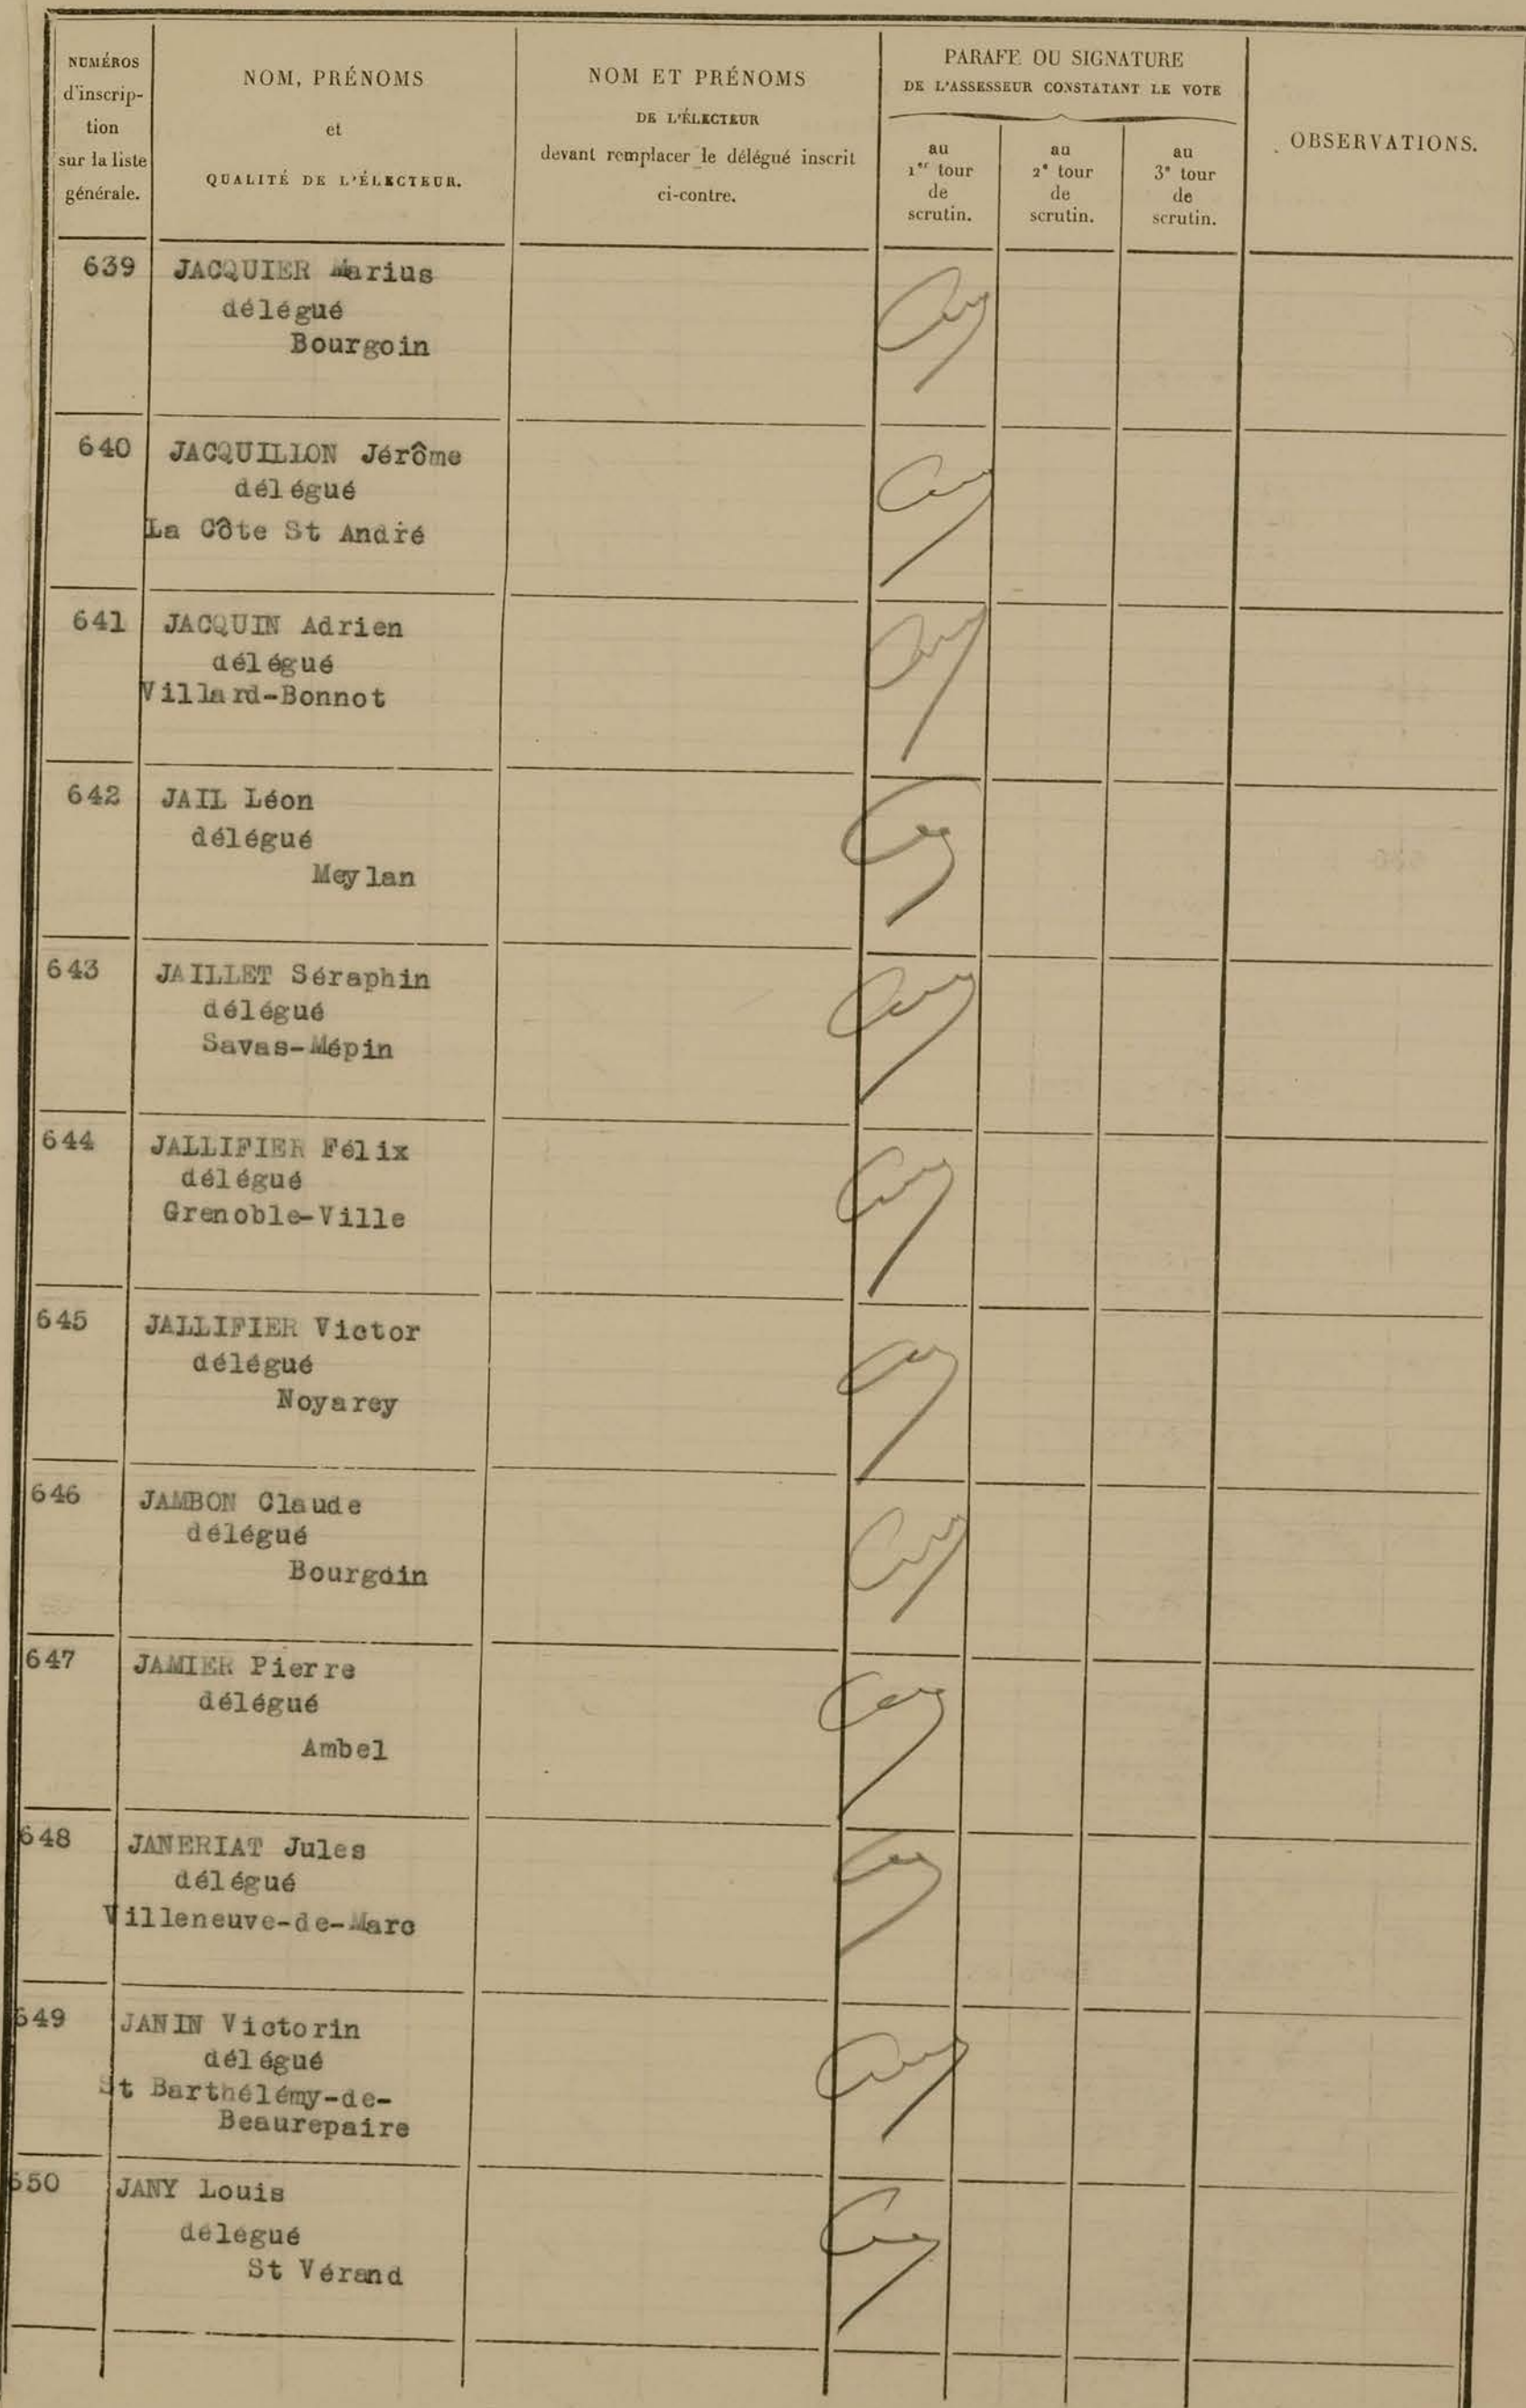 NUMÉROS
d'inscrip-
tion
sur la liste
générale.
NOM, PRÉNOMS
et
QUALITÉ DE L'ÉLECTEUR.
NOM ET PRÉNOMS
DE L'ÉLECTEUR
devant remplacer le délégué inscrit
ci-contre.
PARAFE OU SIGNATURE
DE L'ASSESSEUR CONSTATANT LE VOTE
au
1er tour
de
scrutin.
au
2e tour
de
scrutin.
au
3e tour
de
scrutin.
OBSERVATIONS.
639 JACQUIER Marius
délégué
Bourgoin
640 JACQUILLON Jérôme
délégué
La Côte St André
641 JACQUIN Adrien
délégué
Villard-Bonnot
642 JAIL Léon
délégué
Meylan
643 JAILLET Séraphin
délégué
Savas-Mépin
644 JALLIFIER Félix
délégué
Grenoble-Ville
645 JALLIFIER Victor
délégué
Noyarey
646 JAMBON Claude
délégué
Bourgoin
647 JAMIER Pierre
délégué
Ambel
648 JANERIAT Jules
délégué
Villeneuve-de-Marc
649 JANIN Victorin
délégué
St Barthélémy-de-
Beaurepaire
650 JANY Louis
délégué
St Vérand